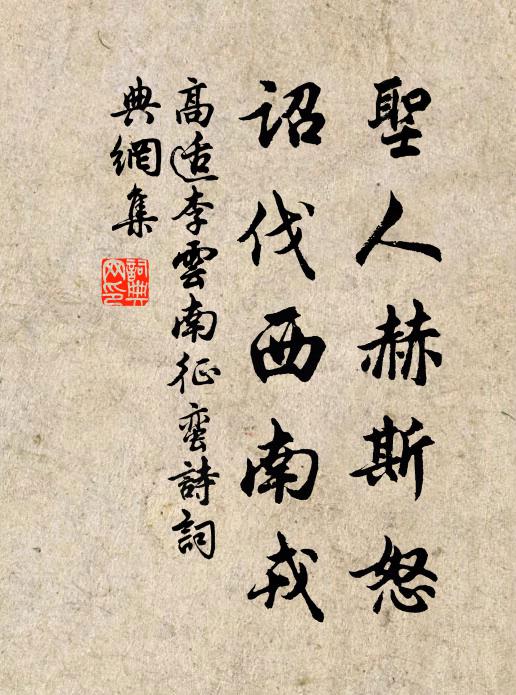 聖人赫斯怒
詔伐西南戎
高适李雲南征蠻詩詞
典網集
詞典網印